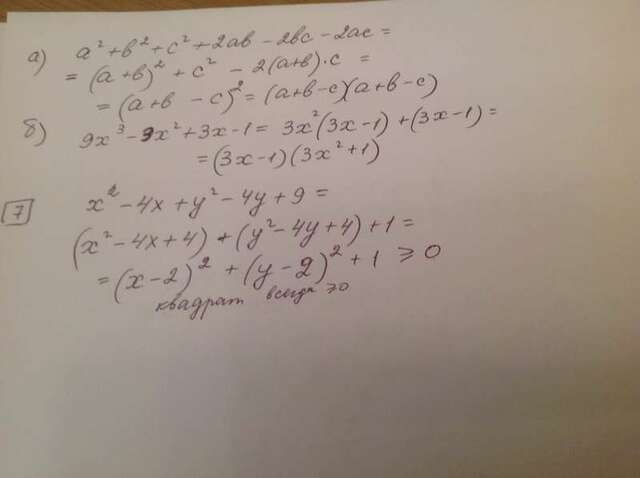 а) a² + b² + c² + 2ab - 2bc - 2ac =
= (a+b)² + c² - 2(a+b)·c =
= (a+b - c)² = (a+b-c)(a+b-c)
б) 9x³ - 3x² + 3x - 1 = 3x²(3x-1) + (3x-1) =
= (3x-1)(3x²+1)
7 x² - 4x + y² - 4y + 9 =
(x² - 4x + 4) + (y² - 4y + 4) + 1 =
= (x-2)² + (y-2)² + 1 ⩾ 0
квадрат всегда ⩾0